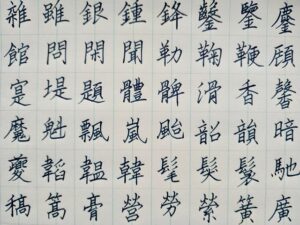 雜雖銀鍾鋒鑿鑒塵
館問閑聞勒鞠鞭顧
寔堤題體髀滑香馨
魔魁飄嵐颱韶韻暗
夔韜韞韓髦髮鬟馳
稿篙膏營勞縈簧廣